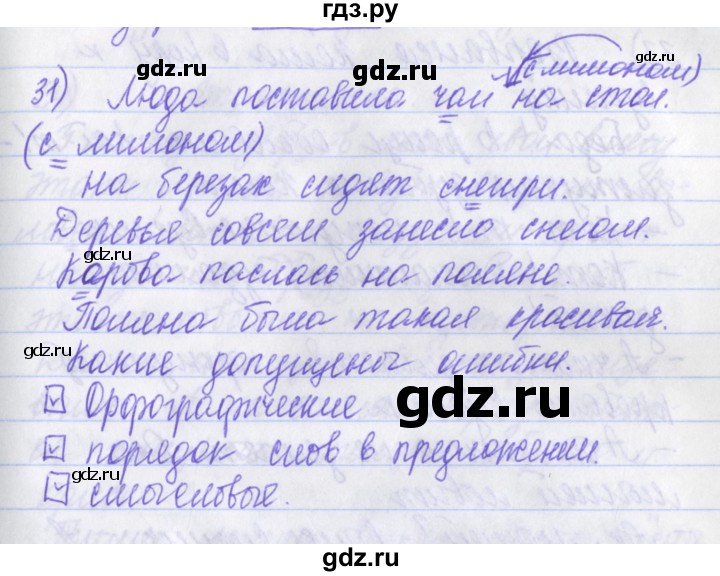 гдз.ру
(с лимоном)
31) Люда поставила чай на стол.
(с лимоном)
gdz.ru
На березах сидят снегири.
gdz.ru
Деревья совсем занесло снегом.
gdz.ru
Корова паслась на поляне.
Поляна была такая красивая.
gdz.ru
Какие допущены ошибки.
gdz.ru
Орфографические
порядок слов в предложении.
gdz.ru
gdz.ru
смысловые.
gdz.ru